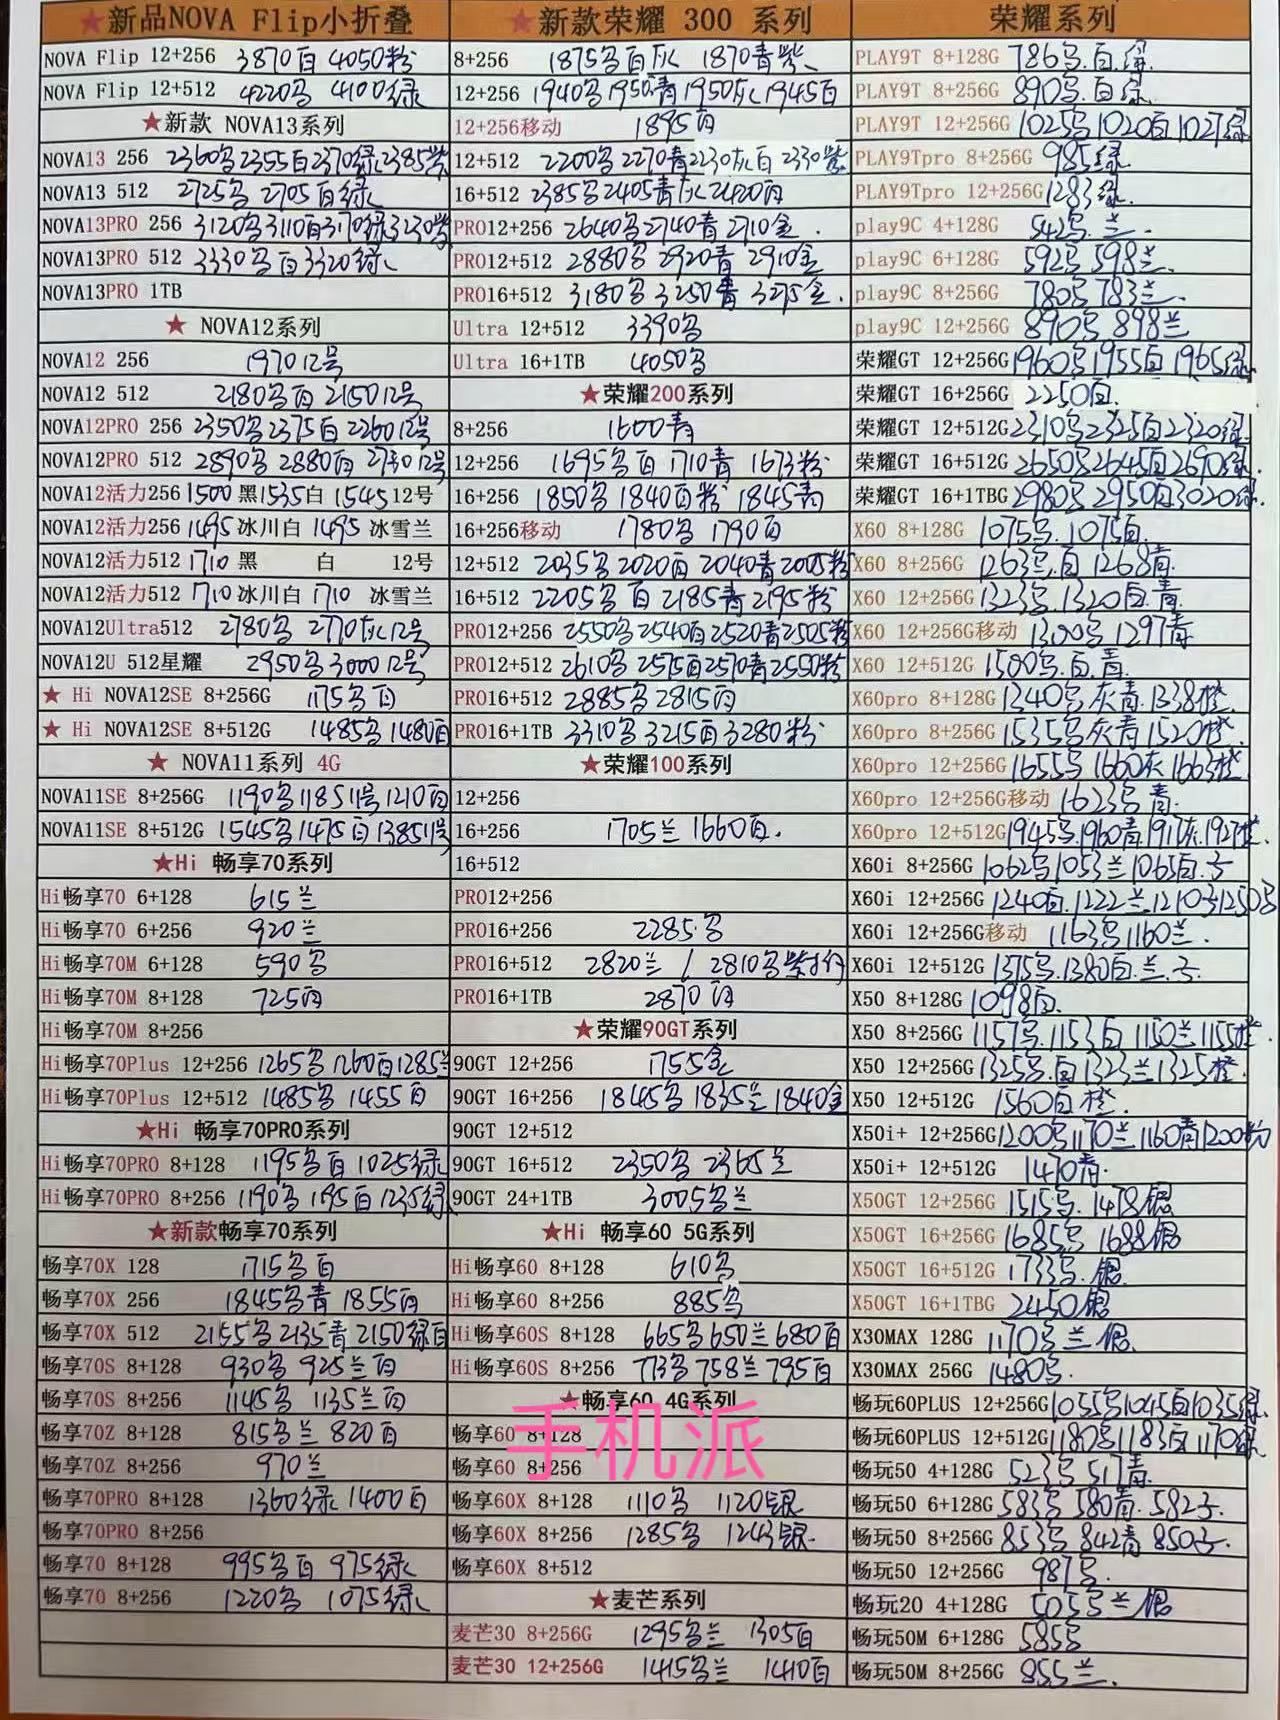 ★新品NOVA Flip小折叠
NOVA Flip 12+256 3870白 4050粉
NOVA Flip 12+512 4220 4100绿
★新款 NOVA13系列
NOVA13 256 2360 2355白 2370绿 2385紫
NOVA13 512 2725 2705白绿
NOVA13PRO 256 3120 3110白 3170绿 3230紫
NOVA13PRO 512 3330 白 3320绿
NOVA13PRO 1TB
★ NOVA12系列
NOVA12 256 1970 12号
NOVA12 512 2180 白 2150 12号
NOVA12PRO 256 2350 2375白 2260 12号
NOVA12PRO 512 2890 2880白 2730 12号
NOVA12活力256 1500 黑1535白 1545 12号
NOVA12活力256 1495 冰川白 1495 冰雪兰
NOVA12活力512 1710 黑 白 12号
NOVA12活力512 1710 冰川白 1710 冰雪兰
NOVA12Ultra512 2780 2770灰12号
NOVA12U 512星耀 2950 3000 12号
★ Hi NOVA12SE 8+256G 1175 白
★ Hi NOVA12SE 8+512G 1485 1480白
★ NOVA11系列 4G
NOVA11SE 8+256G 1190 1185 11号 1210白
NOVA11SE 8+512G 1545 1475白 1385 11号
★Hi 畅享70系列
Hi畅享70 6+128 615兰
Hi畅享70 6+256 920兰
Hi畅享70M 6+128 590
Hi畅享70M 8+128 725白
Hi畅享70M 8+256
Hi畅享70Plus 12+256 1265 1260白 1285兰
Hi畅享70Plus 12+512 1485 1455白
★Hi 畅享70PRO系列
Hi畅享70PRO 8+128 1195 白 1025绿
Hi畅享70PRO 8+256 1190 1195白 1235绿
★新款畅享70系列
畅享70X 128 1715 白
畅享70X 256 1845 青 1855白
畅享70X 512 2155 2135青 2150绿白
畅享70S 8+128 930 925兰白
畅享70S 8+256 1145 1135兰白
畅享70Z 8+128 815 兰 820白
畅享70Z 8+256 970兰
畅享70PRO 8+128 1360绿 1400白
畅享70PRO 8+256
畅享70 8+128 995 白 975绿
畅享70 8+256 1220 1075绿
★新款荣耀 300 系列
8+256 1875 白灰 1870青紫
12+256 1940 1950青 1950灰 1945白
12+256移动 1895白
12+512 2200 2270青 2230灰白 2330紫
16+512 2385 2405青灰 2420白
PRO12+256 2640 2740青 2710金.
PRO12+512 2880 2920青 2910金
PRO16+512 3180 3250青 3275金.
Ultra 12+512 3390
Ultra 16+1TB 4050
★荣耀200系列
8+256 1600青
12+256 1695 白 1710青 1673粉
16+256 1850 1840白粉 1845青
16+256移动 1780 1790白
12+512 2035 2020白 2040青 2005粉
16+512 2205 白 2185青 2195粉
PRO12+256 2550 2540白 2520青 2505粉
PRO12+512 2610 2575白 2570青 2550粉
PRO16+512 2885 2815白
PRO16+1TB 3310 3215白 3280粉
★荣耀100系列
12+256
16+256 1705兰 1660白.
16+512
PRO12+256
PRO16+256 2285
PRO16+512 2820兰 / 2810 紫
PRO16+1TB 2870白
★荣耀90GT系列
90GT 12+256 1755金
90GT 16+256 1845 1835兰 1840金
90GT 12+512
90GT 16+512 2350 2365兰
90GT 24+1TB 3005 兰
★Hi 畅享60 5G系列
Hi畅享60 8+128 610
Hi畅享60 8+256 885
Hi畅享60S 8+128 665 650兰 680白
Hi畅享60S 8+256 773 758兰 795白
★畅享60 4G系列
畅享60 8+128
畅享60 8+256
手机派
畅享60X 8+128 1110 1120银
畅享60X 8+256 1285 1243银.
畅享60X 8+512
★麦芒系列
麦芒30 8+256G 1295 兰 1305白
麦芒30 12+256G 1415 兰 1410白
荣耀系列
PLAY9T 8+128G 786 .白.绿.
PLAY9T 8+256G 890 .白绿
PLAY9T 12+256G 1025 1020白 1027绿
PLAY9Tpro 8+256G 985绿
PLAY9Tpro 12+256G 1283绿.
play9C 4+128G 542 .兰.
play9C 6+128G 592 598兰.
play9C 8+256G 780 783兰.
play9C 12+256G 890 898兰
荣耀GT 12+256G 1960 1955白 1965绿
荣耀GT 16+256G 2250白.
荣耀GT 12+512G 2310 2325白 2320绿
荣耀GT 16+512G 2650 2645白 2690绿
荣耀GT 16+1TBG 2980 2950白 3020绿.
X60 8+128G 1075 .1075白.
X60 8+256G 1263 .白 1268青.
X60 12+256G 1323 .1320白.青
X60 12+256G移动 1300 1297青
X60 12+512G 1500 .白.青.
X60pro 8+128G 1340 灰青.1338橙.
X60pro 8+256G 1535 灰青 1520橙.
X60pro 12+256G 1655 1660灰 1663橙
X60pro 12+256G移动 1623 青.
X60pro 12+512G 1945 .1960青 1917灰.1927橙.
X60i 8+256G 1062 1053兰 1065白.
X60i 12+256G 1240白.1222兰.1210 1250
X60i 12+256G移动 1163 1160兰.
X60i 12+512G 1375 .1380白.兰.
X50 8+128G 1098白.
X50 8+256G 1157 .1153白 1150兰 1155橙
X50 12+256G 1325 .白 1323兰 1325橙.
X50 12+512G 1560白橙.
X50i+ 12+256G 1200 1170兰 1160青 1200粉
X50i+ 12+512G 1470青.
X50GT 12+256G 1515 .1478银
X50GT 16+256G 1685 1688银
X50GT 16+512G 1733 .银.
X50GT 16+1TBG 2450银
X30MAX 128G 1170 兰.银.
X30MAX 256G 1480 .
畅玩60PLUS 12+256G 1055 1045白 1035绿.
畅玩60PLUS 12+512G 1180 1183白 1170绿
畅玩50 4+128G 523 517青.
畅玩50 6+128G 583 580青.582
畅玩50 8+256G 853 842青 850
畅玩50 12+256G 987 .
畅玩20 4+128G 505 兰银
畅玩50M 6+128G 585
畅玩50M 8+256G 855兰.